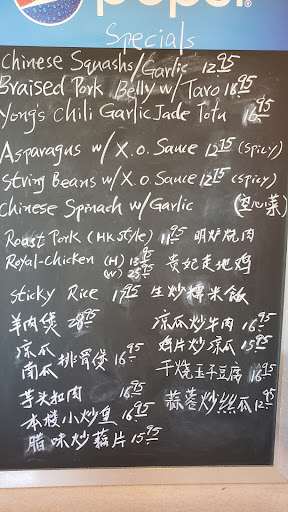 pepsi
Specials
Chinese Squash w/Garlic 12.95
Braised Pork Belly w/ Taro 18.95
Yong's Chili Garlic Jade Tofu 16.95
Asparagus w/ X.O. Sauce 12.75 (spicy)
String Beans w/ X.O. Sauce 12.75 (spicy)
Chinese Spinach w/ Garlic (通心菜)
Roast Pork (HK style) 11.95 明炉烧肉
Royal-chicken (H) 13.95 贵妃走地鸡
(W) 25.95
Sticky Rice 17.95 生炒糯米飯
羊肉煲 28.95 凉瓜炒牛肉 16.95
凉瓜 排骨煲 16.95 鸡片炒凉瓜 15.95
南瓜 干烧玉子豆腐 16.95
芋头扣肉 16.95 蒜蓉炒丝瓜 12.95
本楼小炒皇 16.95
腊味炒藕片 15.95